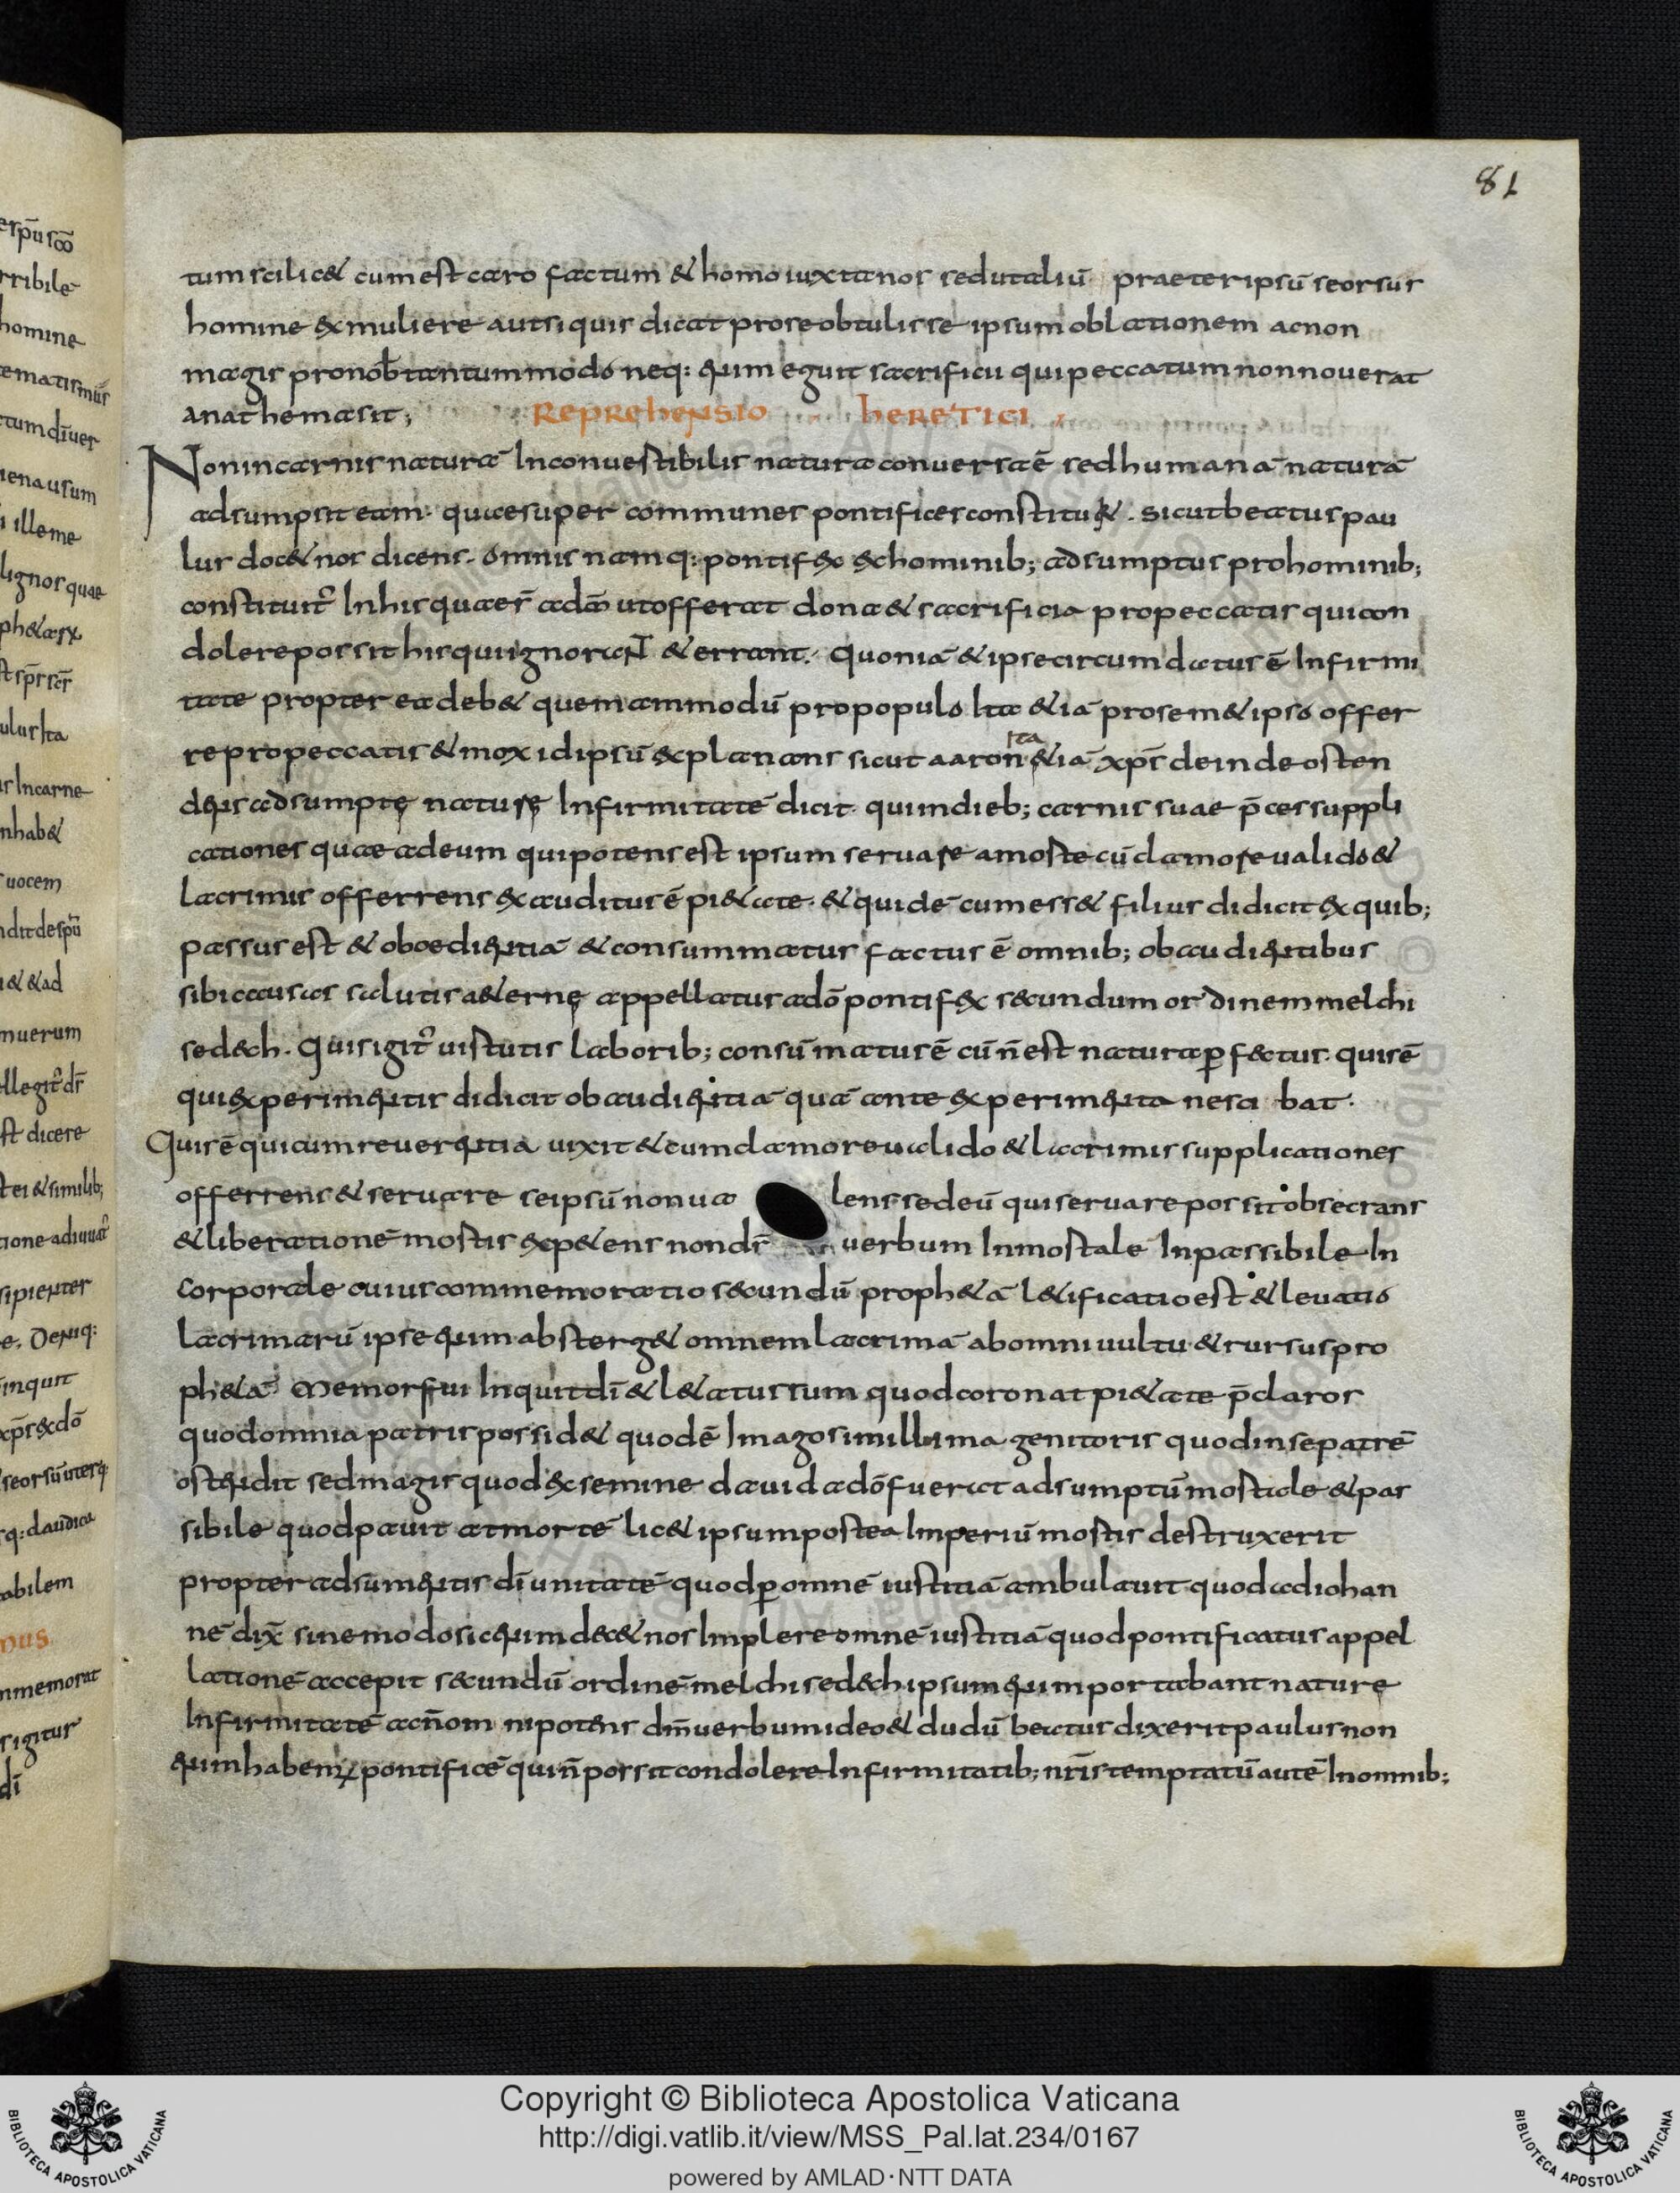 81
tum scilic& cum est caro factum & homo iuxta nos sed ut aliū praeter ipsū seorsus
homine ex muliere aut si quis dicat pro se obtulisse ipsum oblationem ac non
magis pro nob̄ tantummodo neq: enim eguit sacrificii qui peccatum non nouerat
anathema sit; Reprehensio heretici
Non in carnis naturā Inconuertibilis natura conuersa ē sed humanā naturā
adsumpsit eam. quae super communes pontifices constitu&. sicut beatus pau
lus doc& nos dicens. omnis namq: pontifex ex hominib; adsumptus pro hominib;
constituit᷑ In his quae sr̄ ad dm̄ ut offerat dona & sacrificia pro peccatis qui con
dolere possit his qui ignorant & errant. quoniā & ipse circumdatus ē Infirmi
tate propter ea deb& quemammodū pro populo Ita &iā pro sem&ipso offer
re pro peccatis & mox id ipsū explanans sicut aaron ita &iā xp̄s deinde osten
dens adsumptę naturę Infirmitatē dicit. qui in dieb; carnis suae p̄ces suppli
cationes quae ad eum qui potens est ipsum seruare a morte cū clamore ualido &
lacrimis offerrens exauditus ē pi&ate. & quidē cum ess& filius didicit ex quib;
passus est & oboedientiā & consummatus factus ē omnib; obaudientibus
sibi causas salutis a&ernę appellatur a dō pontifex secundum ordinem melchi
sedech. Quis igit᷑ uirtutis laborib; consūmatus ē cū n̄ est natura ꝑfectus. quis ē
qui experimentis didicit obaudientiā quā ante experimenta nesci bat.
Quis ē qui cum reuerentia uixit & cum clamore ualido & lacrimis supplicationes
offerrens & seruare seipsū non ua lens sed eū qui seruare possit obsecrans
& liberationē mortis exp&ens non ds̄ uerbum Inmortale Inpassibile In
corporale cuius commemoratio secundū proph&ā l&ificatio est & leuatio
lacrimarū ipse enim absterg& omnem lacrimā ab omni uultu & rursus pro
ph&ā. Memor fui Inquit dī & l&atus sum quod coronat pi&ate p̄claros
quod omnia patris possid& quod ē Imago simillima genitoris quod in se patrē
ostendit sed magis quod ex semine dauid a dō fuerat adsumptū mortale & pas
sibile quod pauit at mortē lic& ipsum postea Imperiū mortis destruxerit
propter adsumentis dī unitatē quod ꝑ omnē iustitiā ambulauit quod ad iohan
nē dix̄ sine modo sic enim dec& nos Implere omnē iustitiā quod pontificatus appel
lationē accepit secundū ordinē melchisedech ipsum enim portabant nature
Infirmitatē ac n̄ omnipotens dm̄ uerbum ideo & dudū beatus dixerit paulus non
enim habemus pontificē qui n̄ possit condolere Infirmitatib; nr̄is temptatū autē In omnib;
Copyright © Biblioteca Apostolica Vaticana
http://digi.vatlib.it/view/MSS_Pal.lat.234/0167
powered by AMLAD·NTT DATA
BIBLIOTECA APOSTOLICA VATICANA
BIBLIOTECA APOSTOLICA VATICANA